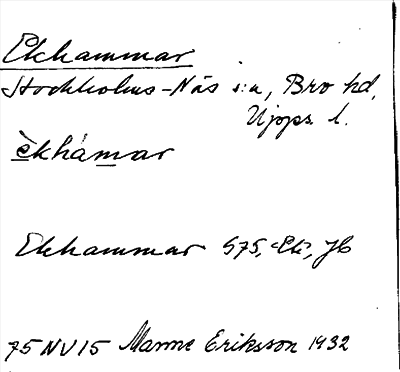 Ekhammar
Stockholms-Näs s:n, Bro hd,
Upps. l.
èkhámar
Ekhammar 575, Ek, Jb
75NV15 Manne Eriksson 1932